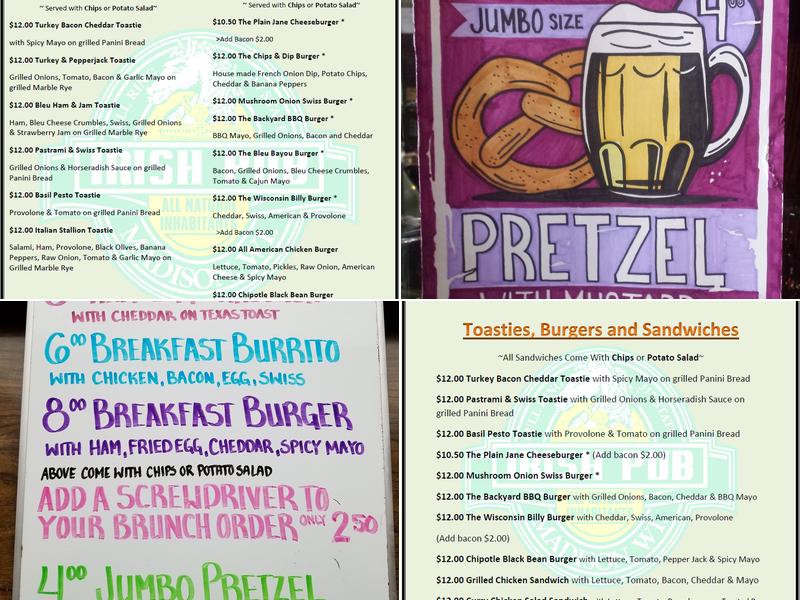 ~ Served with Chips or Potato Salad~
$12.00 Turkey Bacon Cheddar Toastie
with Spicy Mayo on grilled Panini Bread
$12.00 Turkey & Pepperjack Toastie
Grilled Onions, Tomato, Bacon & Garlic Mayo on
grilled Marble Rye
$12.00 Bleu Ham & Jam Toastie
Ham, Bleu Cheese Crumbles, Swiss, Grilled Onions
& Strawberry Jam on Grilled Marble Rye
$12.00 Pastrami & Swiss Toastie
Grilled Onions & Horseradish Sauce on grilled
Panini Bread
$12.00 Basil Pesto Toastie
Provolone & Tomato on grilled Panini Bread
$12.00 Italian Stallion Toastie
Salami, Ham, Provolone, Black Olives, Banana
Peppers, Raw Onion, Tomato & Garlic Mayo on
Grilled Marble Rye
~ Served with Chips or Potato Salad~
$10.50 The Plain Jane Cheeseburger *
>Add Bacon $2.00
$12.00 The Chips & Dip Burger *
House made French Onion Dip, Potato Chips,
Cheddar & Banana Peppers
$12.00 Mushroom Onion Swiss Burger *
$12.00 The Backyard BBQ Burger *
BBQ Mayo, Grilled Onions, Bacon and Cheddar
$12.00 The Bleu Bayou Burger *
Bacon, Grilled Onions, Bleu Cheese Crumbles,
Tomato & Cajun Mayo
$12.00 The Wisconsin Billy Burger *
Cheddar, Swiss, American & Provolone
>Add Bacon $2.00
$12.00 All American Chicken Burger
Lettuce, Tomato, Pickles, Raw Onion, American
Cheese & Spicy Mayo
$12.00 Chipotle Black Bean Burger
IRISH PUB
ALL NATURAL
INHABITANTS
JUMBO SIZE
PRETZEL
WITH MUSTARD
WITH CHEDDAR ON TEXAS TOAST
6.00 BREAKFAST BURRITO
WITH CHICKEN, BACON, EGG, SWISS
8.00 BREAKFAST BURGER
WITH HAM, FRIED EGG, CHEDDAR, SPICY MAYO
ABOVE COME WITH CHIPS OR POTATO SALAD
ADD A SCREWDRIVER TO
YOUR BRUNCH ORDER ONLY 2.50
4.00 JUMBO PRETZEL
Toasties, Burgers and Sandwiches
~All Sandwiches Come With Chips or Potato Salad~
$12.00 Turkey Bacon Cheddar Toastie with Spicy Mayo on grilled Panini Bread
$12.00 Pastrami & Swiss Toastie with Grilled Onions & Horseradish Sauce on
grilled Panini Bread
$12.00 Basil Pesto Toastie with Provolone & Tomato on grilled Panini Bread
$10.50 The Plain Jane Cheeseburger * (Add bacon $2.00)
$12.00 Mushroom Onion Swiss Burger *
$12.00 The Backyard BBQ Burger with Grilled Onions, Bacon, Cheddar & BBQ Mayo
$12.00 The Wisconsin Billy Burger with Cheddar, Swiss, American, Provolone
(Add bacon $2.00)
$12.00 Chipotle Black Bean Burger with Lettuce, Tomato, Pepper Jack & Spicy Mayo
$12.00 Grilled Chicken Sandwich with Lettuce, Tomato, Bacon, Cheddar & Mayo
IRISH PUB